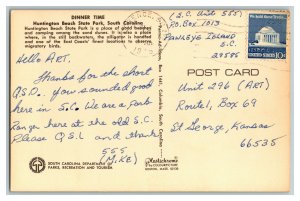 DINNER TIME
Huntington Beach State Park, South Carolina
Huntington Beach State Park is a place of good beaches
and camping among the sand dunes. It is also a place
where, in the still backwaters, the alligator is handled
and one of the East Coasts' finest locations to observe
migratory birds.
Hello ART.
Thanks for the short
Q.S.O. you sounded good
here in S.C. We are a Park
Ranger here at the old S.C.
Please Q.S.L and thanks
555
(MIKE)
SOUTH CAROLINA DEPARTMENT OF
PARKS, RECREATION AND TOURISM
(S.C. Unit 555)
PO. Box 1013
PAWLEYS ISLAND
S.C.
29585
10c
POST CARD
Unit 296 (ART)
Route 1, Box 69
St George, Kansas
66535